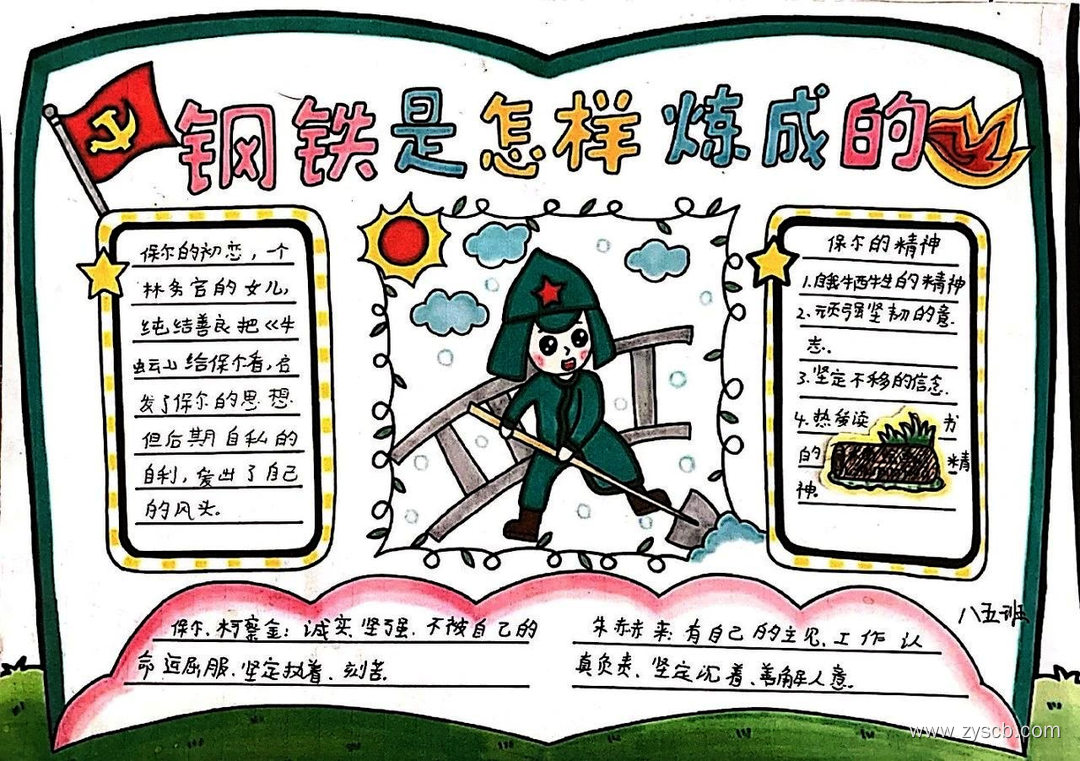 钢铁是怎样炼成的
保尔的初恋，一个
林务官的女儿，
纯结善良把《牛
虻》给保尔看，启
发了保尔的思想.
但后期自私的
自利，爱出了自己
的风头.
保尔的精神
1.自我牺牲的精神
2.顽强坚韧的意
志.
3.坚定不移的信念.
4.热爱读书
的精
神.
保尔.柯察金：诚实.坚强.不被自己的
命运屈服.坚定执着、刻苦.
朱赫来：有自己的主见.工作认
真负责.坚定沉着、善解人意.
八五班
www.zyscb.com